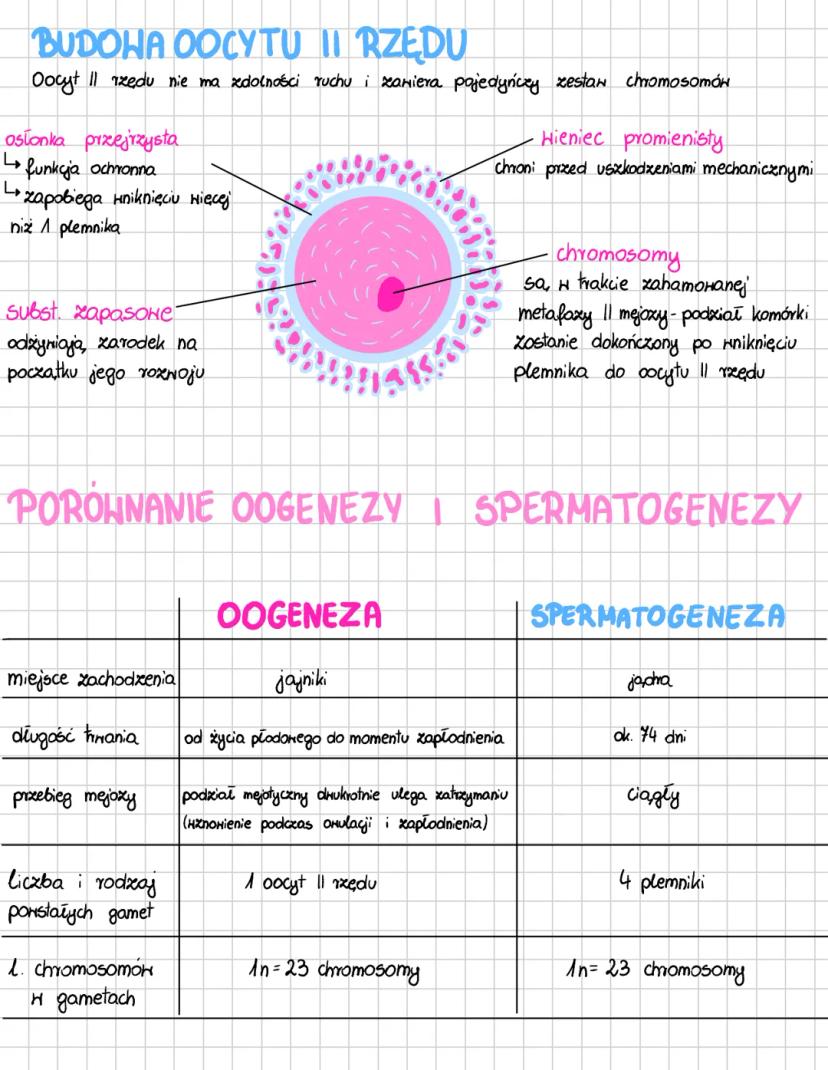 BUDOWA OOCYTU II RZĘDU
Oocyt II rzędu nie ma zdolności ruchu i zawiera pojedyńczy zestaw chromosomów
osłonka przejrzysta
↳ funkcja ochronna
↳ zapobiega wniknięciu więcej
niż 1 plemnika
wieniec promienisty
chroni przed uszkodzeniami mechanicznymi
chromosomy
są w trakcie zahamowanej
metafazy II mejozy - podział komórki
zostanie dokończony po wniknięciu
plemnika do oocytu II rzędu
subst. zapasowe
odżywiają zarodek na
początku jego rozwoju
PORÓWNANIE OOGENEZY I SPERMATOGENEZY
OOGENEZA SPERMATOGENEZA
miejsce zachodzenia jajniki jądra
długość trwania od życia płodowego do momentu zapłodnienia ok. 74 dni
przebieg mejozy podział mejotyczny dwukrotnie ulega zatrzymaniu ciągły
(wznowienie podczas owulacji i zapłodnienia)
liczba i rodzaj 1 oocyt II rzędu 4 plemniki
powstałych gamet
l. chromosomów 1n = 23 chromosomy 1n = 23 chromosomy
w gametach